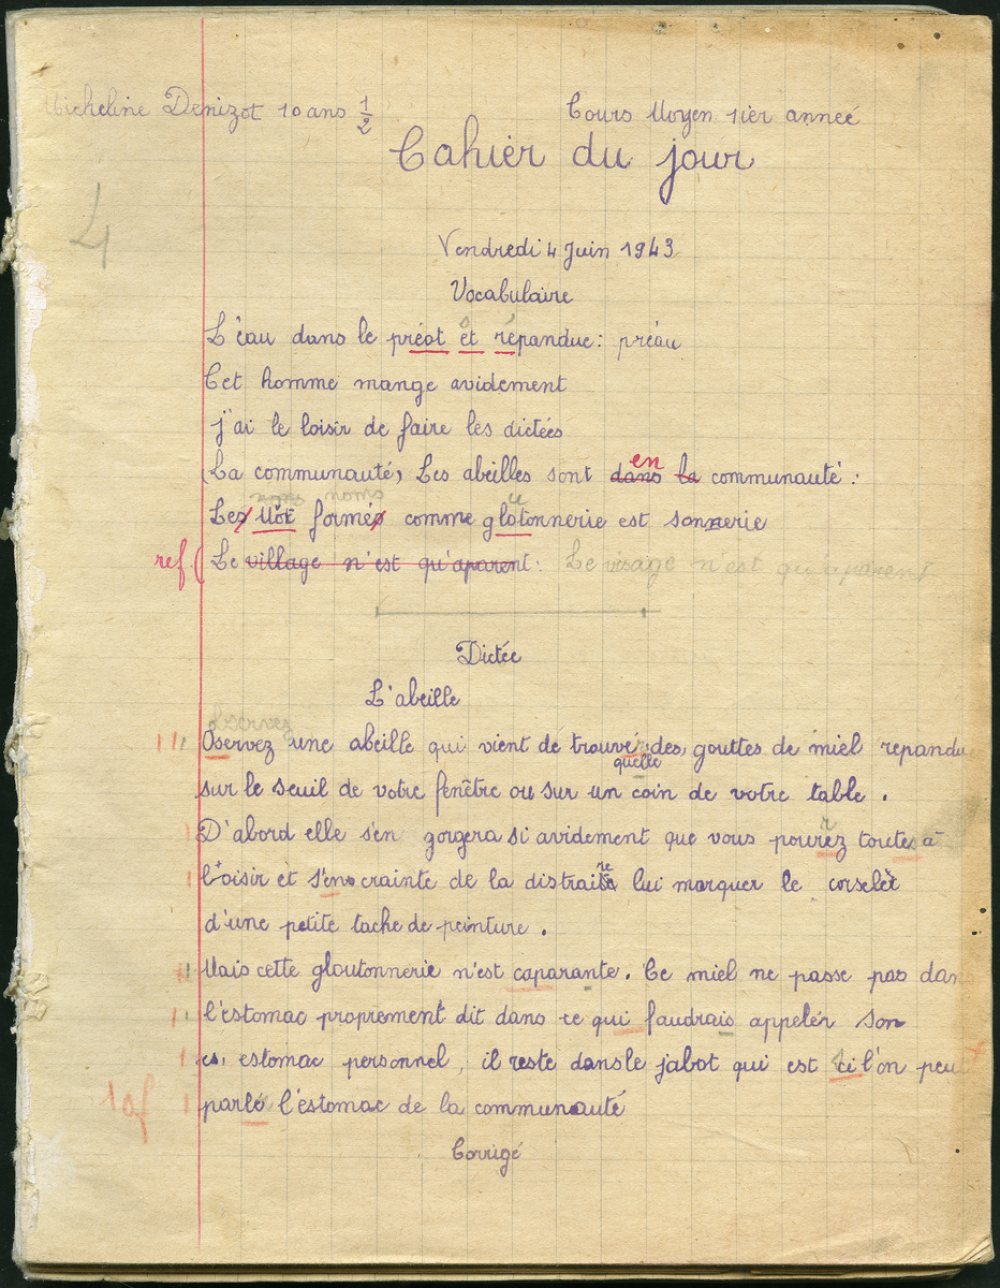 Micheline Denizot 10 ans 1/2 Cours Moyen 1ièranneé
Cahier du jour
4
Vendredi 4 Juin 1943
Vocabulaire
L'eau dans le préot et répandue : préau
Cet homme mange avidement
j'ai le loisir de faire les dictées
en
(La communauté) Les abeilles sont dans la communauté :
noms noms
u
Les Mot formés comme glotonnerie est sonnerie
ref. ( Le village n'est qu'aparent : Le visage n'est qu'aparent
Dictée
L'abeille
observez
Oservez une abeille qui vient de trouvé des gouttes de miel repandu
quelle
sur le seuil de votre fenêtre ou sur un coin de votre table .
r
D'abord elle s'en gorgera si avidement que vous pourez toutes à
re
l'oisir et s'ens crainte de la distraite lui marquer le corselet
d'une petite tache de peinture .
Mais cette gloutonnerie n'est caparante . Ce miel ne passe pas dan
l'estomac proprement dit dans ce qui faudrais appeler son
estomac personnel , il reste dans le jabot qui est ci l'on peu
10f parlé l'estomac de la communauté
Corrigé